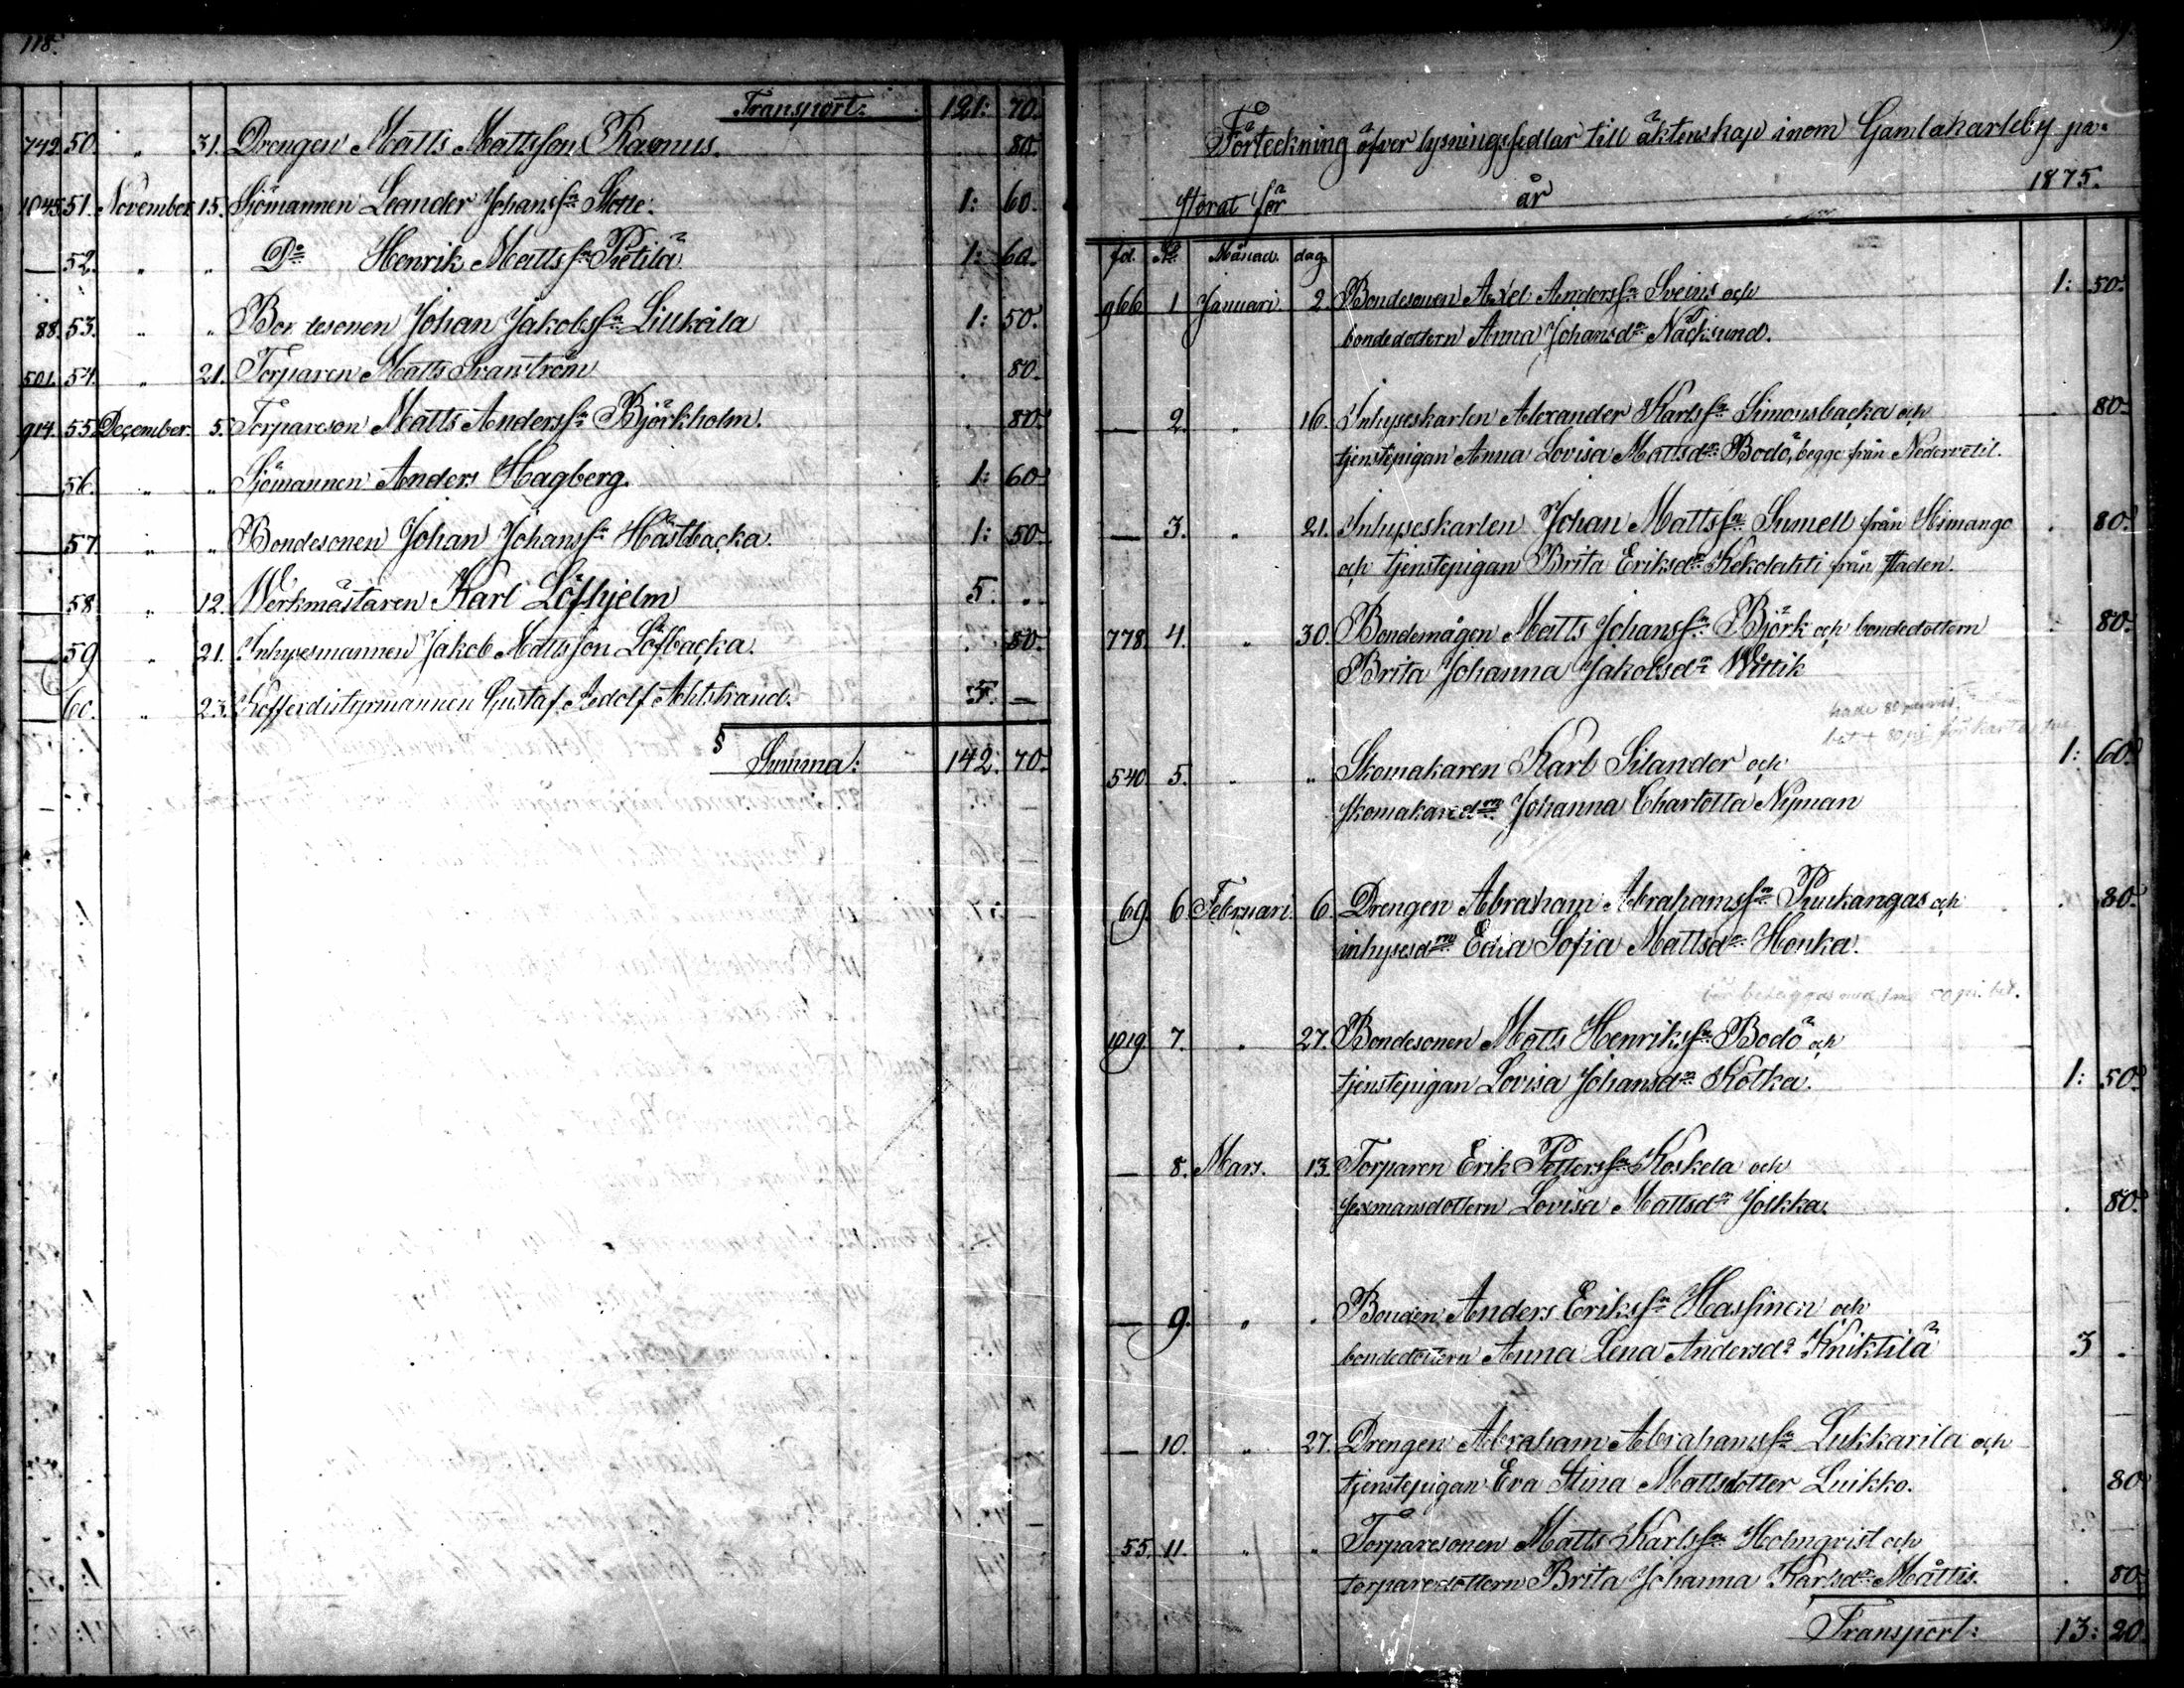 118.
Transport: 121: 70.
742. 50. " 31. Drengen Matts Mattsson Rasmus. 80.
1045. 51. November. 15. Sjömannen Leander Johanss:n Slotte. 1: 60.
— 52. " " D:o Henrik Mattss:n Pietilä 1: 60.
88. 53. " " Bondesonen Johan Jakobss:n Liukala 1: 50.
501. 54. " 21. Torparen Matts Svanström . 80.
914. 55. December. 5. Torpareson Matts Anderss:n Björkholm. . 80.
— 56. " " Sjömannen Anders Hagberg. 1: 60.
— 57 " " Bondesonen Johan Johanss:n Hästbacka. 1: 50.
— 58. " 12. Werkmästaren Karl Löfhjelm 5. .
— 59 " 21. Inhysesmannen Jakob Mattsson Löfbacka. . 80.
— 60. " 23. Kofferdistyrmannen Gustaf Adolf Ahlstrand. 5. —
§ Summa: 142: 70.
Förteckning öfver lysningssedlar till äktenskap inom Gamlakarleby pa-
storat för år 1875.
fol. No Månad. dag.
966 1 Januari. 2. Bondesonen Axel Anderss:n Sveins och 1: 50.
bondedottern Anna Johansd:r Näcksund.
— 2. " 16. Inhyseskarlen Alexander Karlss:n Simonsbacka och . 80.
tjenstepigan Anna Lovisa Mattsd:r Bodö, begge från Nedervetil.
— 3. " 21. Inhyseskarlen Johan Mattss:n Sumell från Himango . 80.
och tjenstepigan Brita Eriksd:r Kekolahti från staden.
778. 4. " 30. Bondemågen Matts Johanss:n Björk och bondedottern . 80.
Brita Johanna Jakobsd:r Wittik
hade 80 penni
540 5. " " Skomakaren Karl Silander och 1: 60.
skomakared:rn Johanna Charlotta Nyman
69. 6 Februari. 6. Drengen Abraham Abrahamss:n Puukangas och . 80.
inhysesd:rn Edla Sofia Mattsd:r Honka.
1019. 7. " 27. Bondesonen Matts Henrikss:n Bodö och
tjenstepigan Lovisa Johansd:r Kotka. 1: 50.
— 8. Mars. 13. Torparen Erik Petterss:n Koskela och
sexmansdottern Lovisa Mattsd:r Jolkka. . 80.
— 9. " . Bonden Anders Erikss:n Hassinen och
bondedottern Anna Lena Andersd:r Kniktilä 3 .
— 10. " 27. Drengen Abraham Abrahamss:n Lukkarila och
tjenstepigan Eva Stina Mattsdotter Luikko. . 80.
55. 11. " " Torparesonen Matts Karlss:n Holmqvist och
torparedottern Brita Johanna Karlsd:r Måttis. . 80.
Transport: 13: 20.